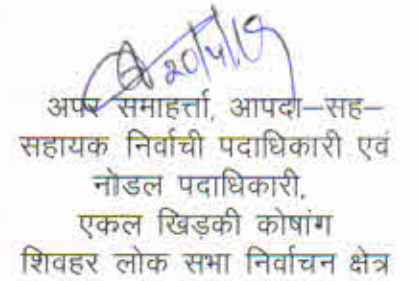 20/4/19
अपर समाहर्त्ता, आपदा–सह–
सहायक निर्वाची पदाधिकारी एवं
नोडल पदाधिकारी,
एकल खिड़की कोषांग
शिवहर लोक सभा निर्वाचन क्षेत्र